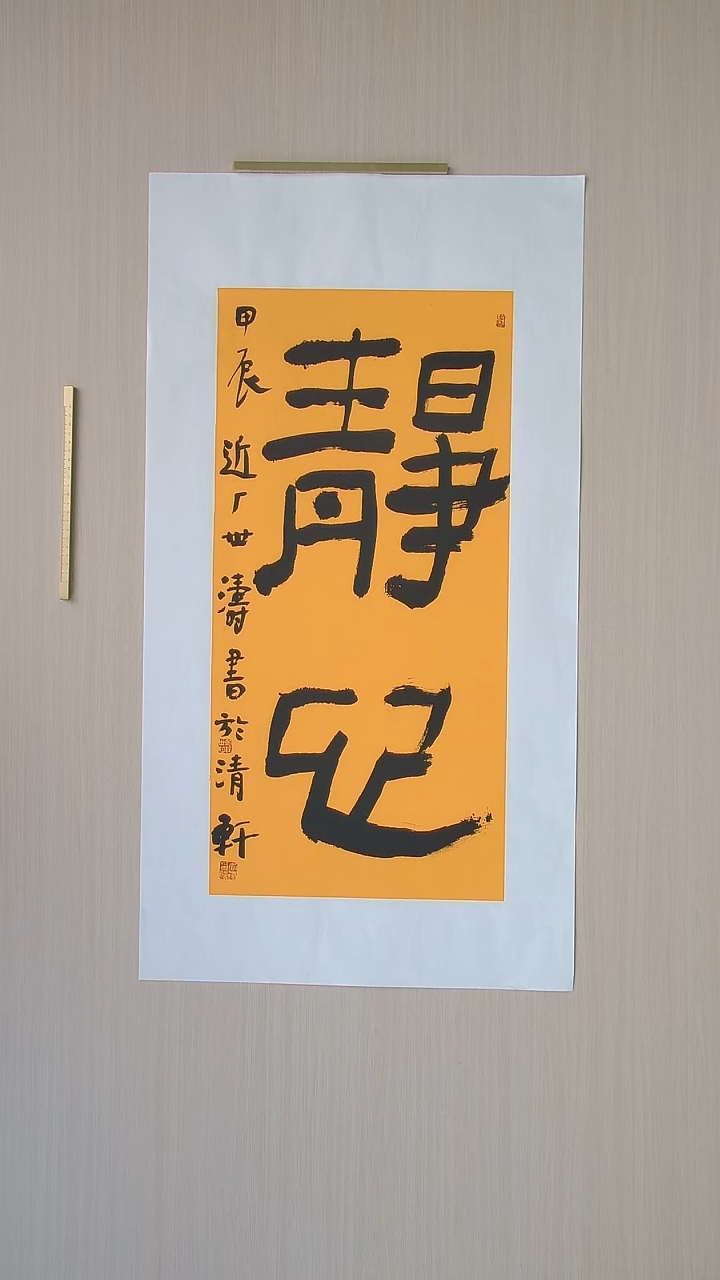 靜心
甲辰 近 卅 濤書於清軒